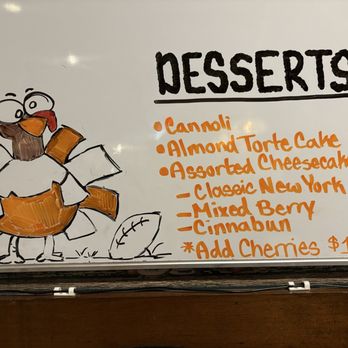 DESSERTS
•Cannoli
•Almond Torte Cake
•Assorted Cheesecake
-Classic New York
-Mixed Berry
-Cinnabun
*Add Cherries $1